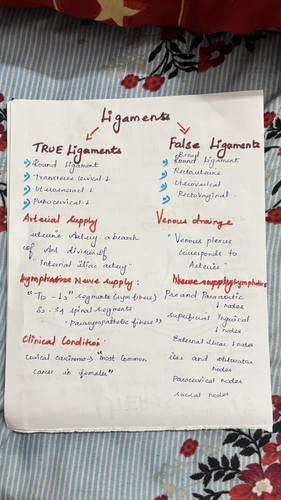 Ligaments
TRUE Ligaments
Round Ligament
Transverse cervical L
Uterosacral L
Pubocervical L
False Ligaments
Broad
Round Ligament
Rectouterine
Uterovesical
Rectovaginal
Arterial supply
uterine Artery a branch
of Ant division of
Internal Iliac artery
Venous drainge
"Venous plexus
corresponds to
Arteries
Lymphatics Nerve supply:
"T12 - L2" segments (sym fibres)
S2 - S4 spinal segments
- Parasympathetic fibres"
Clinical Condition
cervical carcinoma → "most common
cancer in females"
Nerve supply Lymphatics
Pre and Para aortic
L. nodes
superficial Inguinal
L. nodes
External iliac L. nodes
and obturator
nodes
Paracervical nodes
sacral nodes